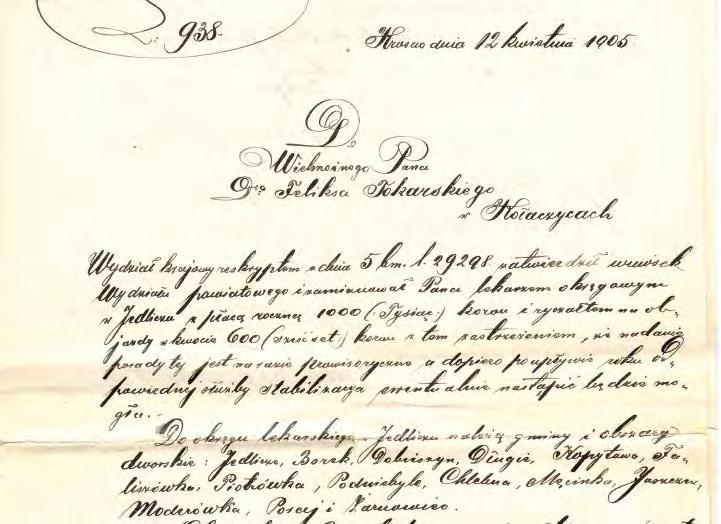 L: 938.
Krosno dnia 12 kwietnia 1905
Do
Wielmożnego Pana
Dra Feliksa Tokarskiego
w Kołaczycach
Wydział krajowy reskryptem z dnia 5 bm. l. 29298 zatwierdził wniosek
Wydziału powiatowego i zamianował Pana lekarzem okręgowym
w Jedliczu z płacą roczną 1000 (:Tysiąc:) koron i ryczałtem na ob-
jazdy w kwocie 600 (:sześćset:) koron z tem zastrzeżeniem, że nadanie
posady tej jest na razie prowizoryczne a dopiero po upływie roku od-
powiedniej służby stabilizacja ewentualnie nastąpić będzie mo-
gła.-
Do okręgu lekarskiego w Jedliczu należą gminy i obszary
dworskie: Jedlicze, Borek, Dobieszyn, Długie, Kopytowa, Ta-
liszówka, Piotrówka, Podniebyle, Chlebna, Męcinka, Jaszczew,
Moderówka, Poraj i Żarnowiec.